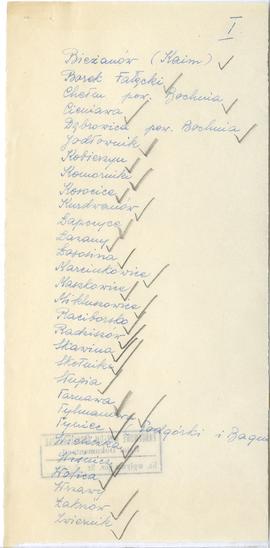 I
Bieżanów (Kaim)
Borek Fałęcki
Chełm pow. Bochnia
Cieniawa
Dąbrowica pow. Bochnia
Jodłownik
Kobierzyn
Komorniki
Kosocice
Kurdwanów
Łapczyca
Łazany
Łososina
Marcinkowice
Maszkowice
Mikluszowice
Raciborsko
Radziszów
Skawina
Skotniki
Słupia
Tarnawa
Tylmanowa
Tyniec Podgórki i
Wieliczka
Wiśnicz
Wolica
Wrzawy
Żaknów
Zwiernik